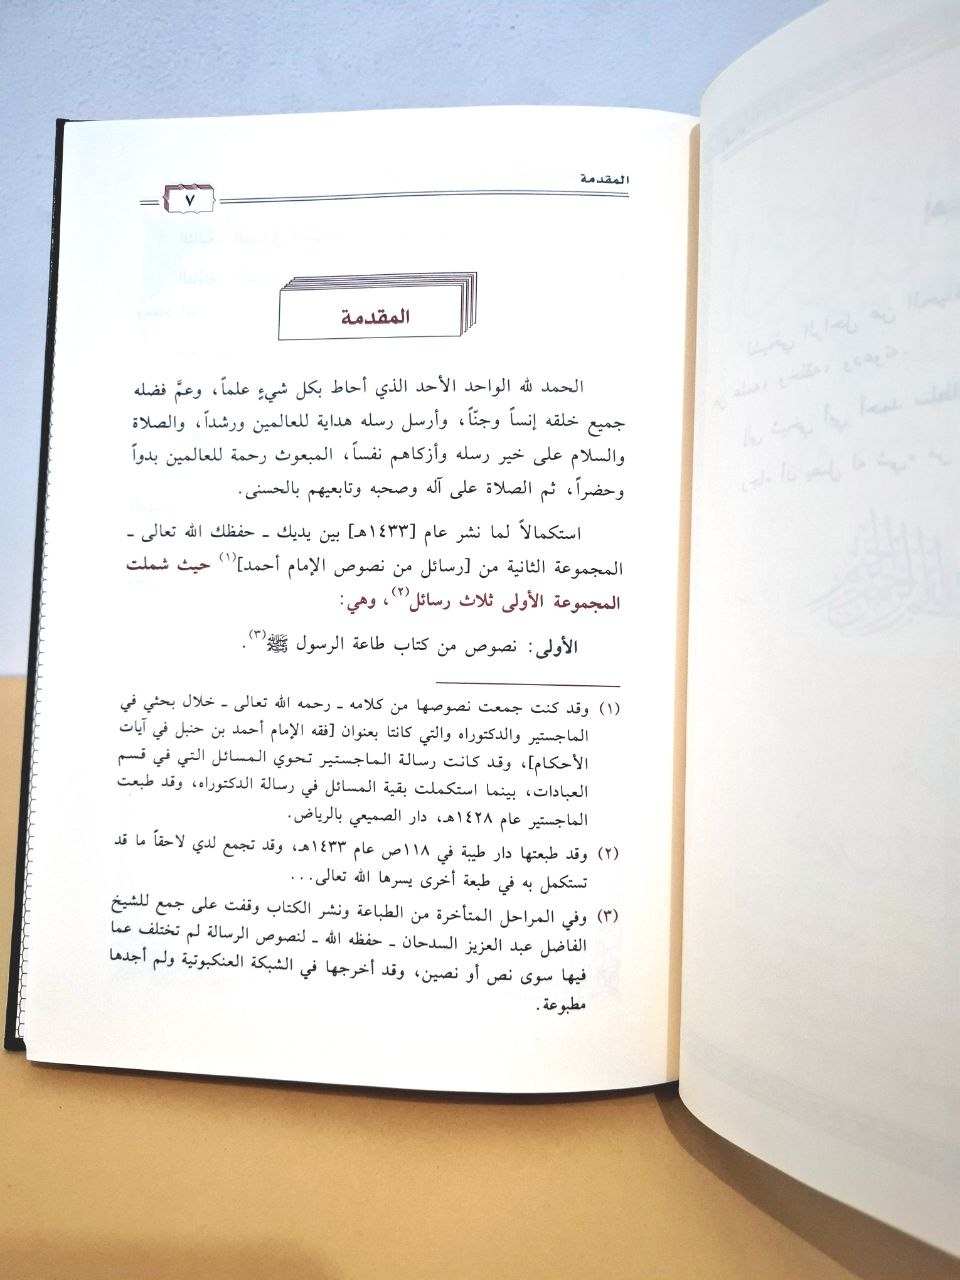 المقدمة
٧
المقدمة
الحمد لله الواحد الأحد الذي أحاط بكل شيءٍ علماً، وعمَّ فضله
جميع خلقه إنساً وجنّاً، وأرسل رسله هداية للعالمين ورشداً، والصلاة
والسلام على خير رسله وأزكاهم نفساً، المبعوث رحمة للعالمين بدواً
وحضراً، ثم الصلاة على آله وصحبه وتابعيهم بالحسنى.
استكمالاً لما نشر عام [١٤٣٣هـ] بين يديك ـ حفظك الله تعالى ـ
المجموعة الثانية من [رسائل من نصوص الإمام أحمد](١) حيث شملت
المجموعة الأولى ثلاث رسائل(٢)، وهي:
الأولى: نصوص من كتاب طاعة الرسول ﷺ(٣).
(١) وقد كنت جمعت نصوصها من كلامه ـ رحمه الله تعالى ـ خلال بحثي في
الماجستير والدكتوراه والتي كانتا بعنوان [فقه الإمام أحمد بن حنبل في آيات
الأحكام]، وقد كانت رسالة الماجستير تحوي المسائل التي في قسم
العبادات، بينما استكملت بقية المسائل في رسالة الدكتوراه، وقد طبعت
الماجستير عام ١٤٢٨هـ، دار الصميعي بالرياض.
(٢) وقد طبعتها دار طيبة في ١١٨ص عام ١٤٣٣هـ، وقد تجمع لدي لاحقاً ما قد
تستكمل به في طبعة أخرى يسرها الله تعالى...
(٣) وفي المراحل المتأخرة من الطباعة ونشر الكتاب وقفت على جمع للشيخ
الفاضل عبد العزيز السدحان ـ حفظه الله ـ لنصوص الرسالة لم تختلف عما
فيها سوى نص أو نصين، وقد أخرجها في الشبكة العنكبوتية ولم أجدها
مطبوعة.